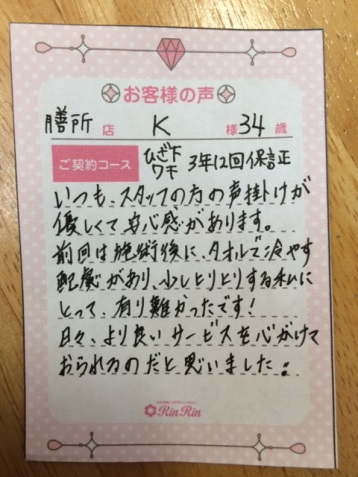 お客様の声
膳所 店 K 様 34 歳
ご契約コース ひざ下 ワキ 3年12回保証
いつも、スタッフの方の声掛けが
優しくて安心感があります。
前回は施術後に、タオルで冷やす
配慮があり、少しヒリヒリする私に
とって、有り難かったです！
日々、より良いサービスを心がけて
おられるのだと思いました。
RinRin